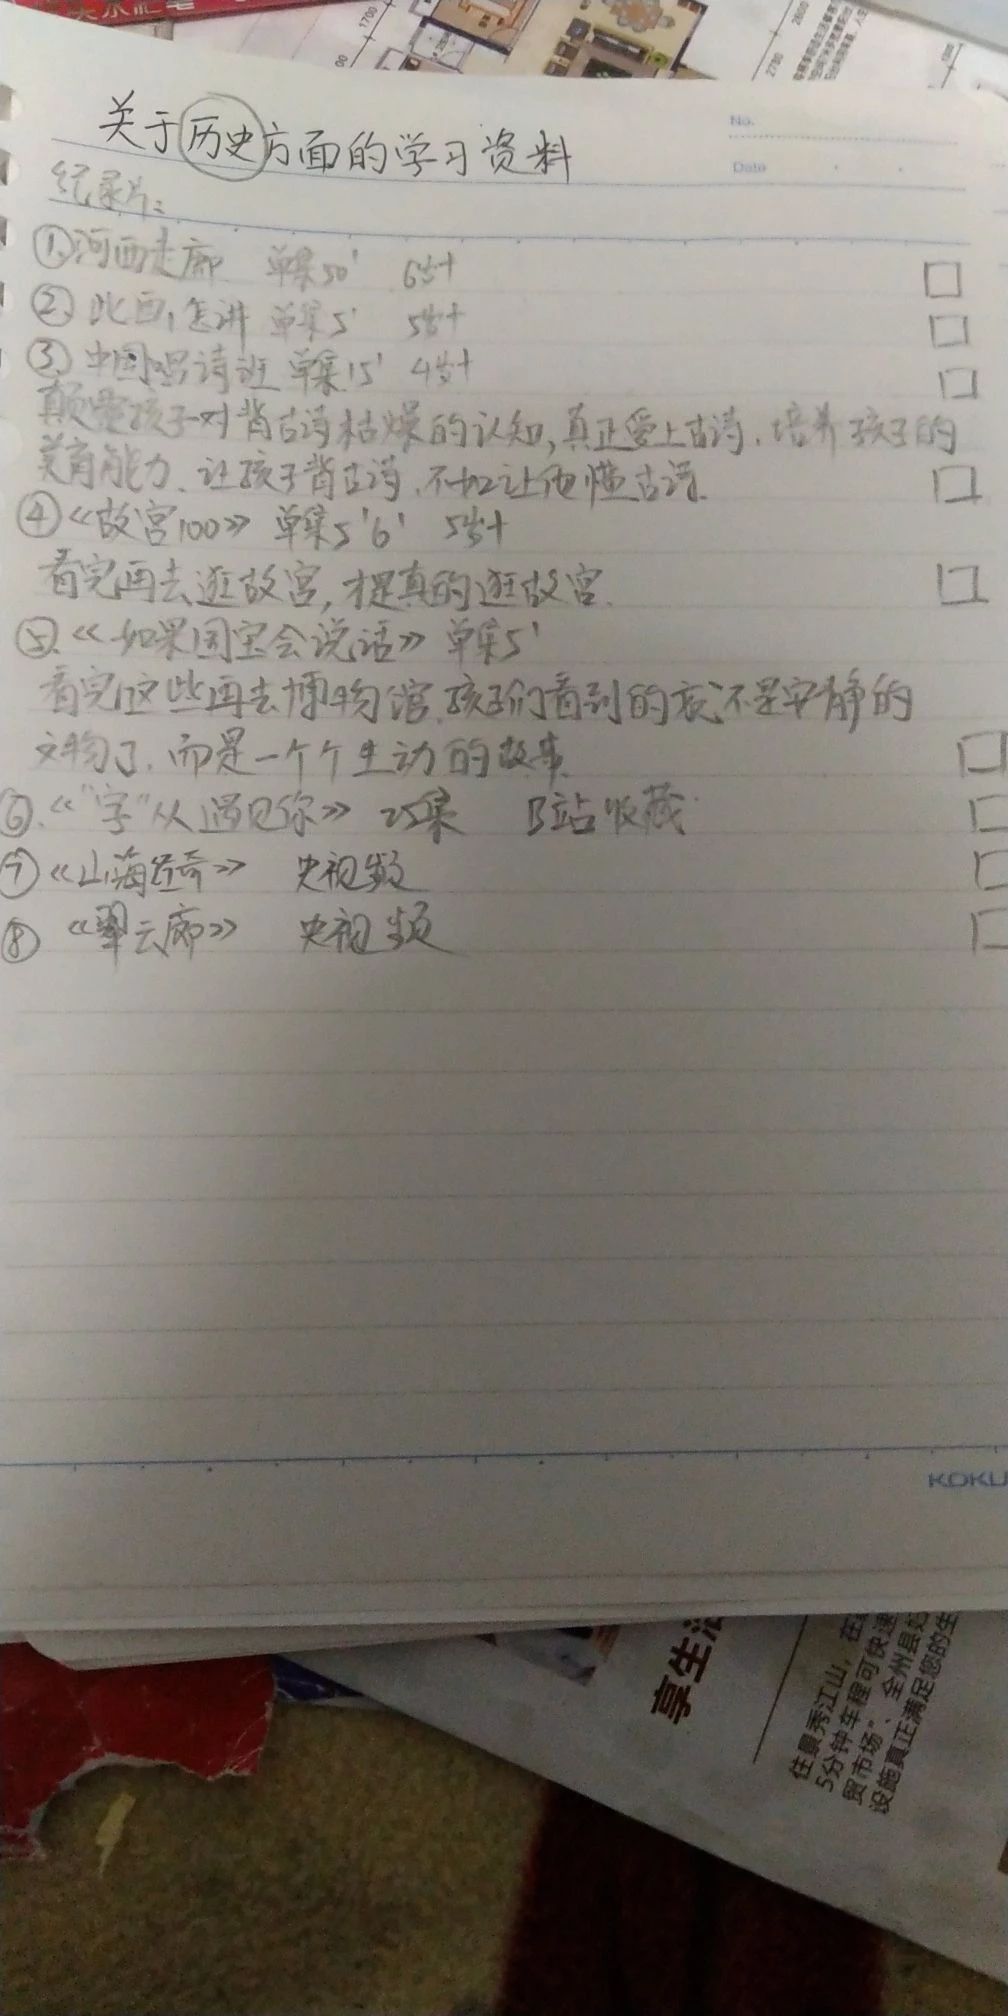 1700
2700
2600
关于历史方面的学习资料
No.
Date
纪录片：
①.河西走廊 单集50' 6岁+
②. 此画怎讲 单集5' 5岁+
③. 中国唱诗班 单集15' 4岁+
颠覆孩子对背古诗枯燥的认知,真正爱上古诗.培养孩子的
美育能力.让孩子背古诗.不如让他懂古诗.
④《故宫100》 单集5'6' 5岁+
看完再去逛故宫,才是真的逛故宫.
⑤.《如果国宝会说话》 单集5'
看完这些再去博物馆.孩子们看到的就不是安静的
文物了.而是一个个生动的故事.
⑥.《"字"从遇见你》 25集 B站收藏
⑦《山海经奇》 央视频
⑧ 《翠云廊》 央视频
KOKU
享生活
住景秀江山，在
5分钟车程可快速
贸市场"、全州县妇
设施真正满足您的生